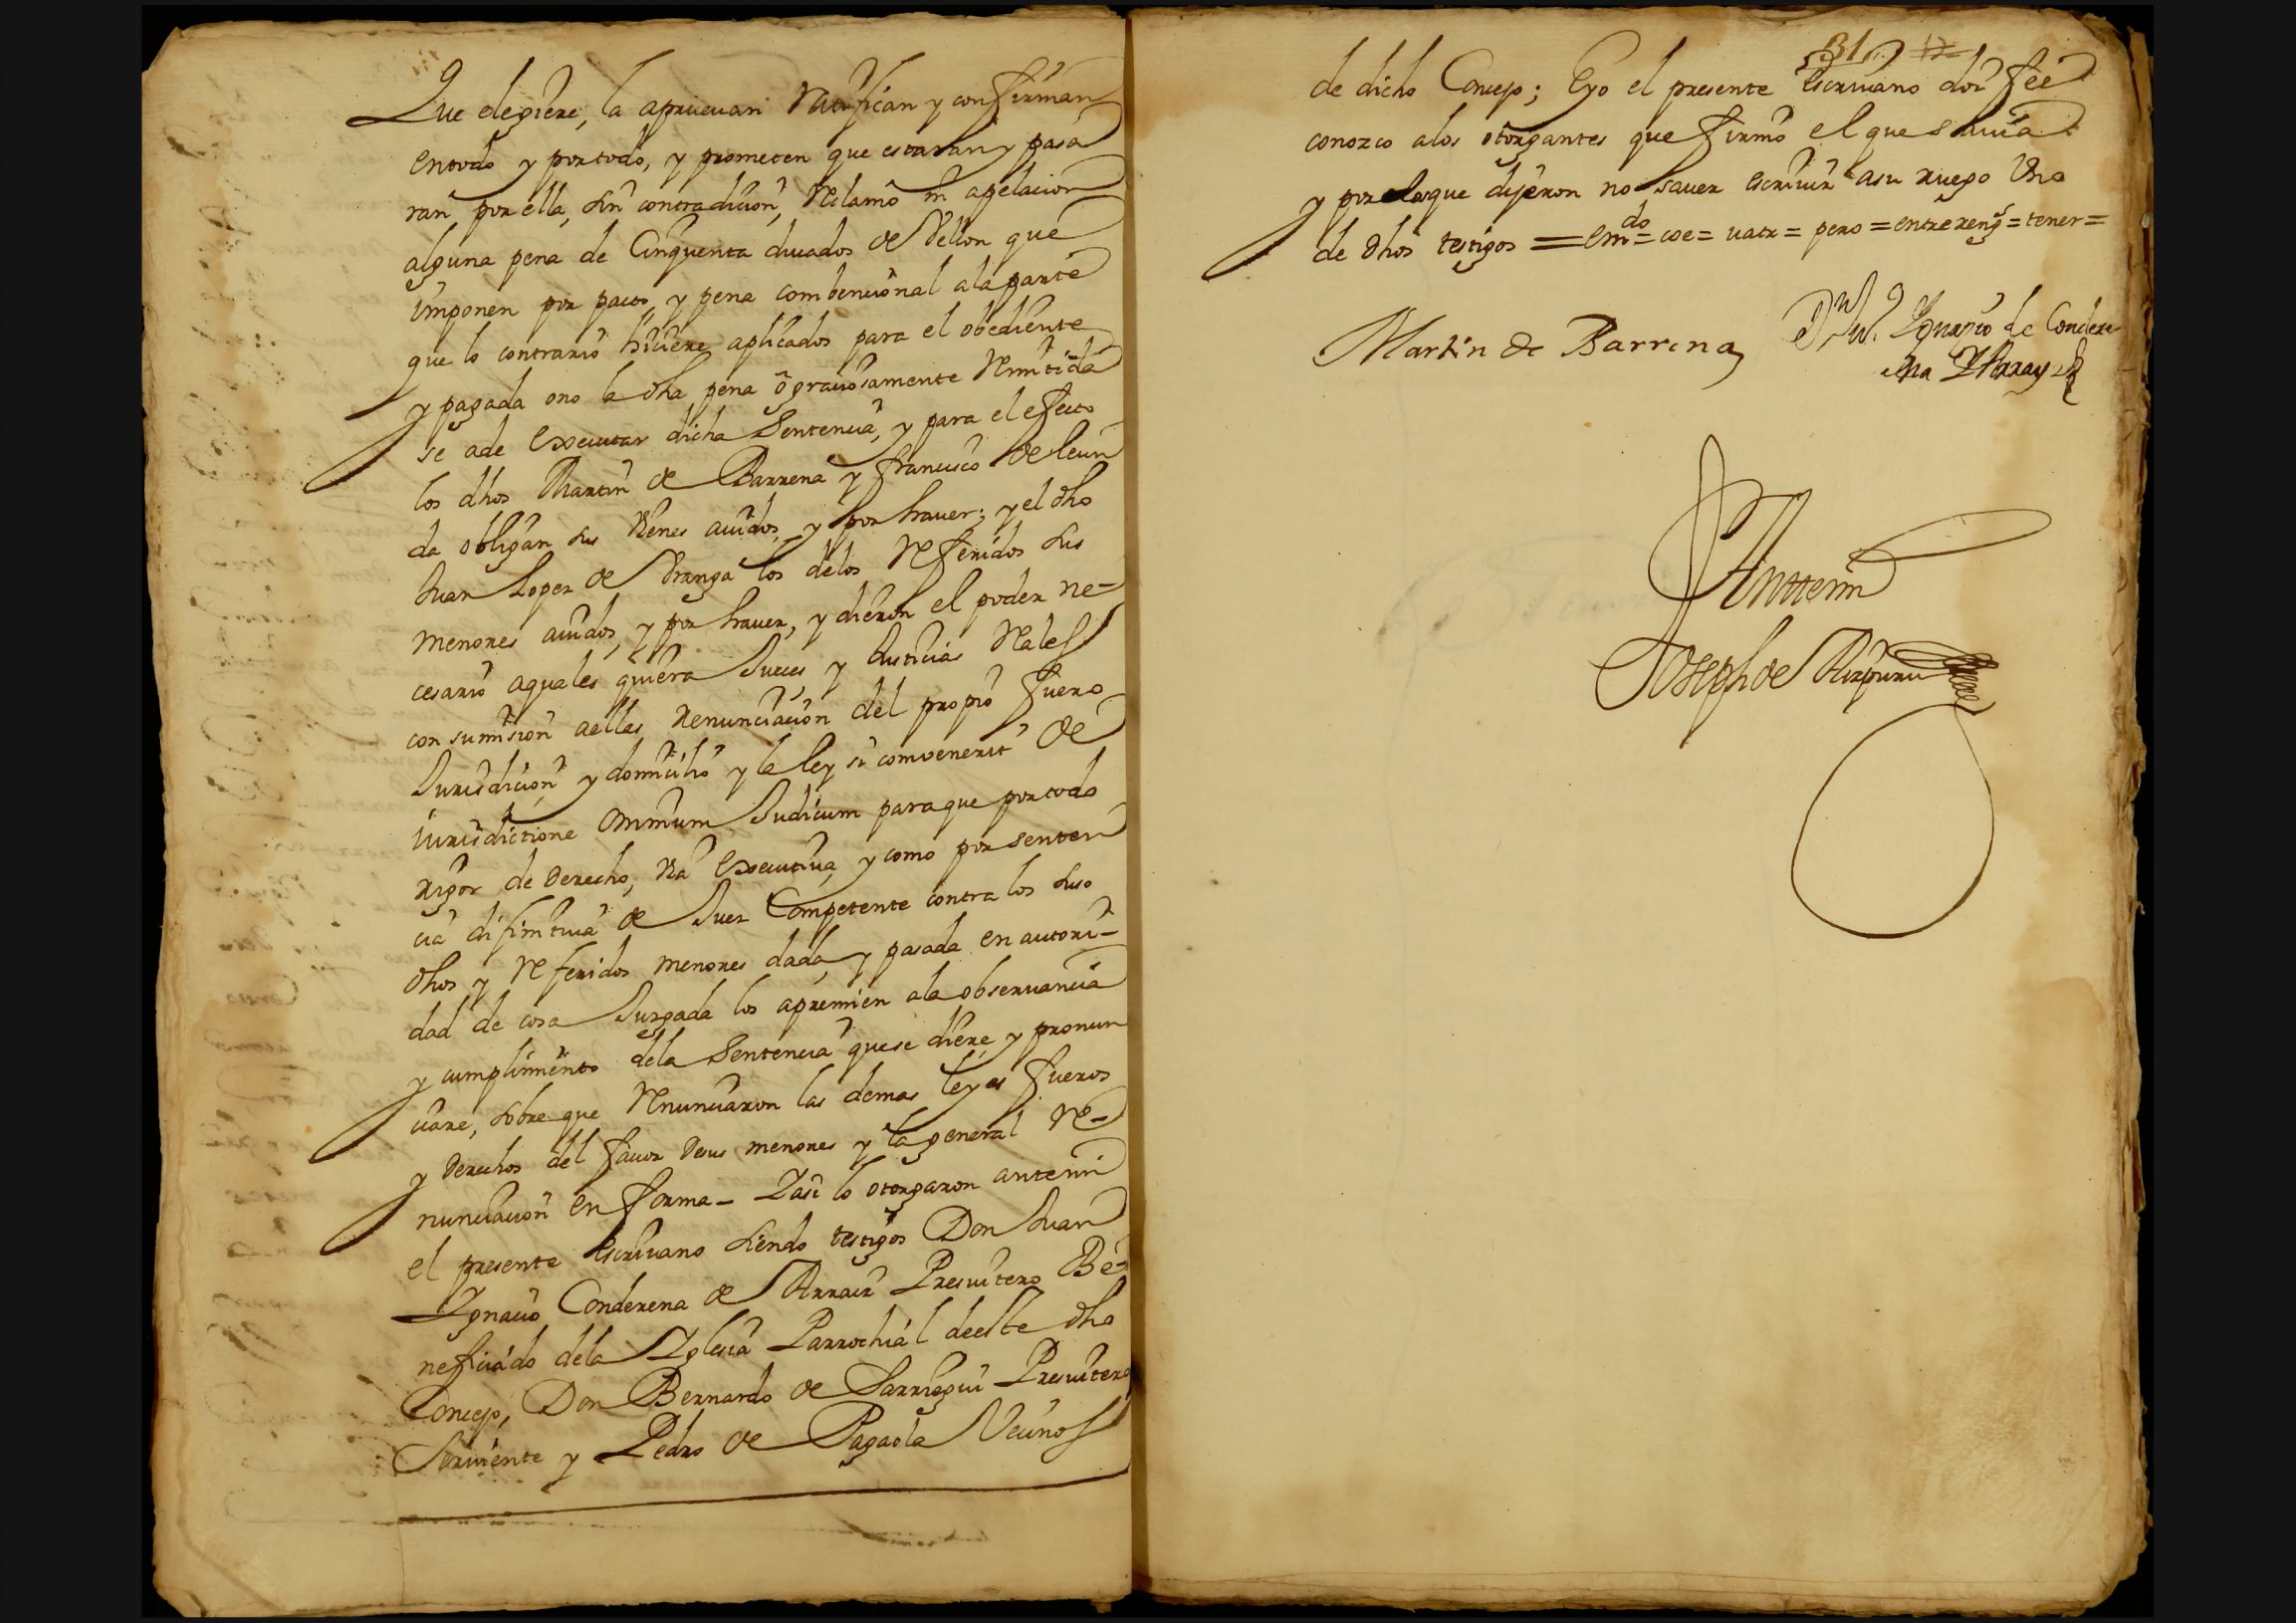 Que elegiere, la aprueuan Ratifican y confirman
entodo y portodo, y prometen que estaran y pasa
ran por ella, sin contradicion, Reclamo ni apelacion
alguna pena de Cinquenta ducados de Vellon que
imponen por pacto, y pena combencional ala parte
que lo contrario hiciere aplicados para el obediente
y pagada ono la dha pena ô graciosamente Remitida
se ade executar dicha Sentencia, y para el efecto
los dhos Martin de Barrena y francisco de leun
da obligan sus Vienes auidos, y por hauer; y el dho
Juan Lopez de Vranga los delos Referidos sus
menores auidos, y por hauer, y dieron el poder ne-
cesario aquales quiera Jueces y Justicias Reales
con sumision aellas Renunciacion del propio fuero
Jurisdicion y domicilio y la ley si convenerit de
iurisdictione omnium Judicum paraque portodo
rigor de derecho, Via executiua, y como por senten
cia difinitiua de Juez Competente contra los suso
dhos y Referidos menores dada, y pasada en autori-
dad de cosa Juzgada los apremien ala obseruancia
y cumplimiento dela Sentencia que se diere y pronun
ciare, sobre que Renunciaron las demas leyes fueros
y derechos del fauor desus menores y la general Re-
nunciacion en forma - Yasi lo otorgaron antemi
el presente escriuano siendo testigos Don Juan
Ygnacio Conderena de Arraiz Presuitero Be-
neficiado dela Yglesia Parrochial deeste dho
Concejo, Don Bernardo de Sarriegui Presuitero
Siruiente y Pedro de Pagaola Vecinos
31
de dicho Concejo; Eyo el presente escriuano doi fee
conozco alos otorgantes que firmo el que sauia
y por los que dijeron no sauer escriuir asu ruego Vno
de dhos testigos = em.do = coe = uatr = pero = entrereng.s = tener =
Martin de Barrena
Dn Ju. Ygnacio de Condere
na Y Arraiz
Antemi
Joseph de Aizpuru